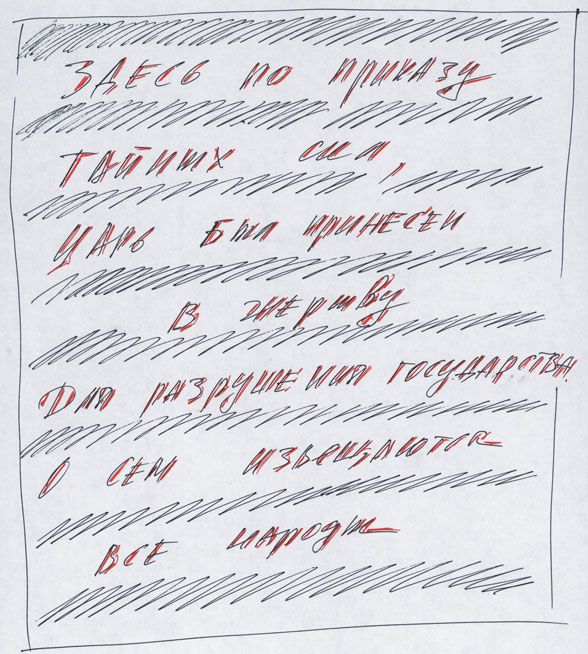 ЗДЕСЬ ПО ПРИКАЗУ
ТАЙНЫХ СИЛ,
ЦАРЬ БЫЛ ПРИНЕСЕН
В ЖЕРТВУ
ДЛЯ РАЗРУШЕНИЯ ГОСУДАРСТВА.
О СЕМ ИЗВЕЩАЮТСЯ
ВСЕ НАРОДЫ